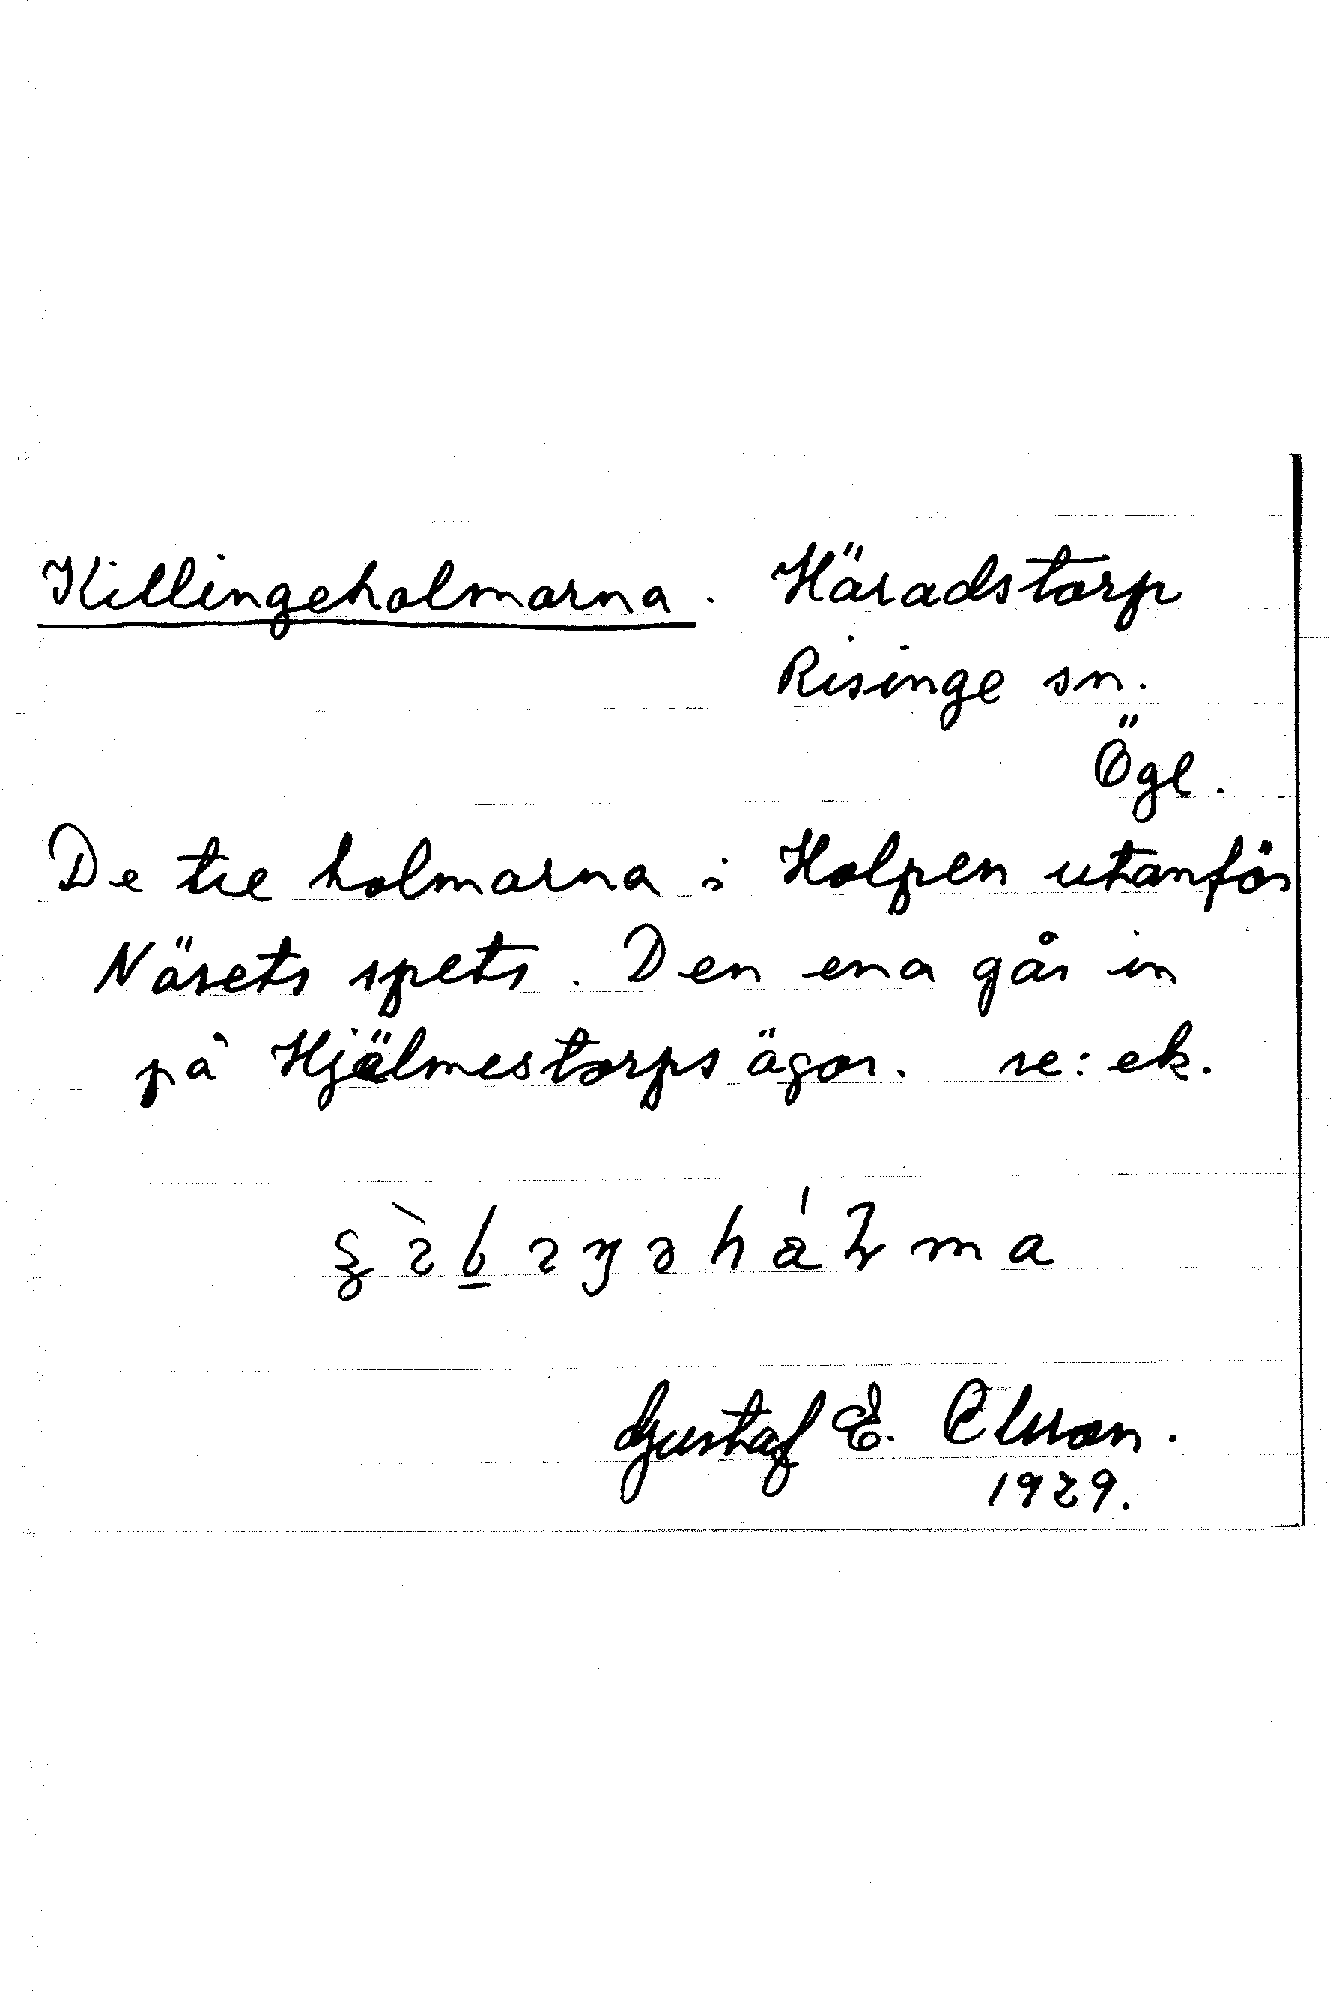 Killingeholmarna. Häradstorp
Risinge sn.
Ögl.
De tre holmarna i Holpen utanför
Näsets spets. Den ena går in
på Hjälmestorps ägor. se: ek.
Gustaf E. 
1929.